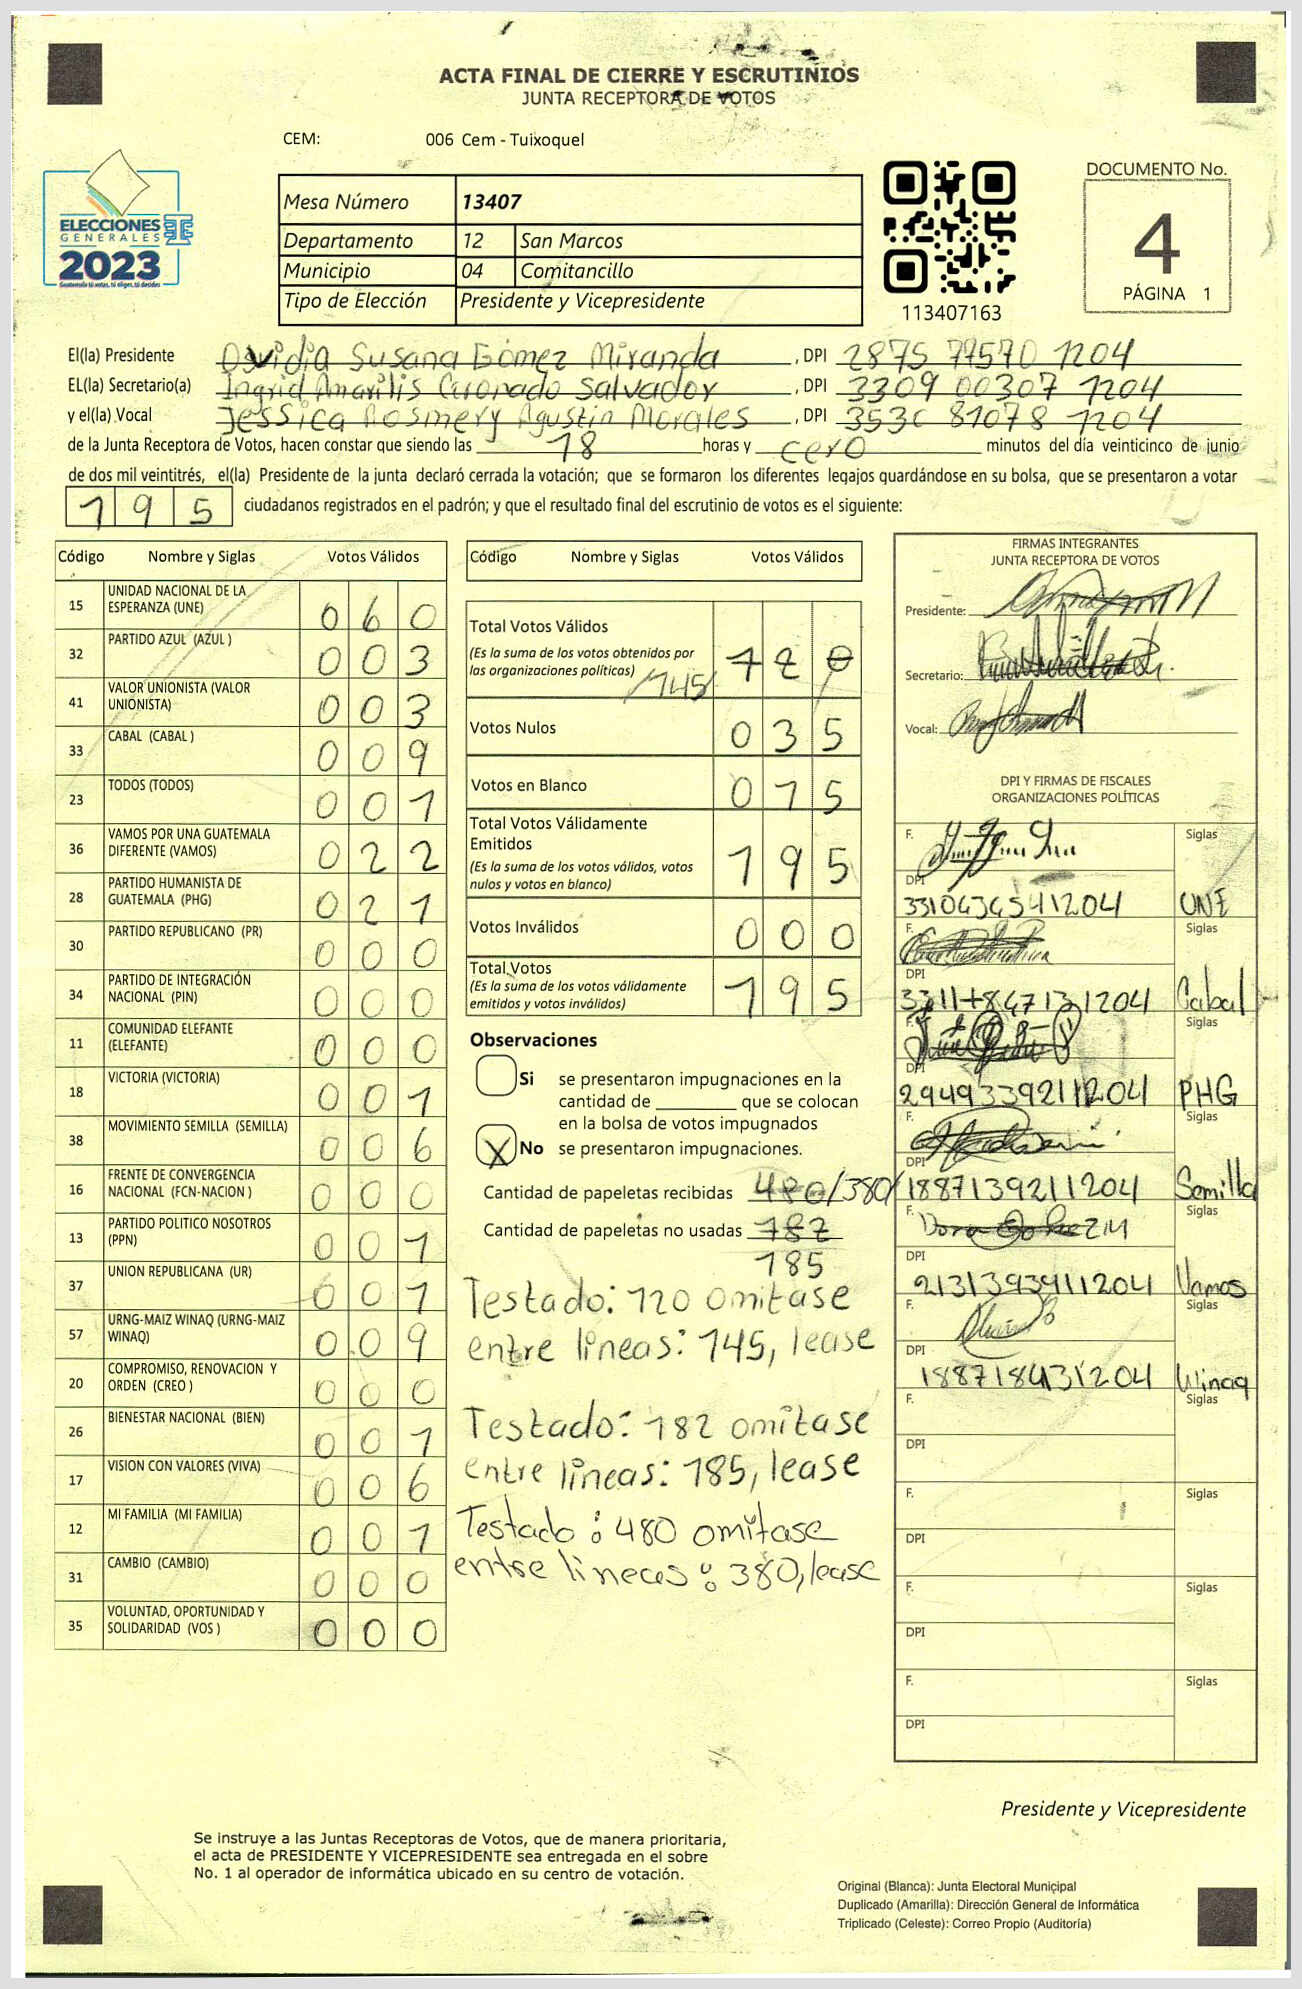 ACTA FINAL DE CIERRE Y ESCRUTINIOS
JUNTA RECEPTORA DE VOTOS
CEM: 006 Cem - Tuixoquel
ELECCIONES
GENERALES
2023
Guatemala tú votas, tú eliges, tú decides
Mesa Número 13407
Departamento 12 San Marcos
Municipio 04 Comitancillo
Tipo de Elección Presidente y Vicepresidente
113407163
DOCUMENTO No.
4
PÁGINA 1
El(la) Presidente Osvidia Susana Gómez Miranda, DPI 2875 77570 1204
EL(la) Secretario(a) Ingrid Amarilis Coronado Salvador, DPI 3309 00307 1204
y el(la) Vocal Jessica Rosmery Agustin Morales, DPI 3530 81078 1204
de la Junta Receptora de Votos, hacen constar que siendo las 18 horas y cero minutos del día veinticinco de junio
de dos mil veintitrés, el(la) Presidente de la junta declaró cerrada la votación; que se formaron los diferentes legajos guardándose en su bolsa, que se presentaron a votar
195 ciudadanos registrados en el padrón; y que el resultado final del escrutinio de votos es el siguiente:
Código Nombre y Siglas Votos Válidos
15 UNIDAD NACIONAL DE LA ESPERANZA (UNE) 060
32 PARTIDO AZUL (AZUL ) 003
41 VALOR UNIONISTA (VALOR UNIONISTA) 003
33 CABAL (CABAL ) 009
23 TODOS (TODOS) 001
36 VAMOS POR UNA GUATEMALA DIFERENTE (VAMOS) 022
28 PARTIDO HUMANISTA DE GUATEMALA (PHG) 021
30 PARTIDO REPUBLICANO (PR) 000
34 PARTIDO DE INTEGRACIÓN NACIONAL (PIN) 000
11 COMUNIDAD ELEFANTE (ELEFANTE) 000
18 VICTORIA (VICTORIA) 001
38 MOVIMIENTO SEMILLA (SEMILLA) 006
16 FRENTE DE CONVERGENCIA NACIONAL (FCN-NACION ) 000
13 PARTIDO POLITICO NOSOTROS (PPN) 001
37 UNION REPUBLICANA (UR) 001
57 URNG-MAIZ WINAQ (URNG-MAIZ WINAQ) 009
20 COMPROMISO, RENOVACION Y ORDEN (CREO ) 000
26 BIENESTAR NACIONAL (BIEN) 001
17 VISION CON VALORES (VIVA) 006
12 MI FAMILIA (MI FAMILIA) 001
31 CAMBIO (CAMBIO) 000
35 VOLUNTAD, OPORTUNIDAD Y SOLIDARIDAD (VOS ) 000
Código Nombre y Siglas Votos Válidos
Total Votos Válidos
(Es la suma de los votos obtenidos por
las organizaciones políticas) /145/ 120
Votos Nulos 035
Votos en Blanco 015
Total Votos Válidamente
Emitidos
(Es la suma de los votos válidos, votos
nulos y votos en blanco) 195
Votos Inválidos 000
Total Votos
(Es la suma de los votos válidamente
emitidos y votos inválidos) 195
Observaciones
Si se presentaron impugnaciones en la
cantidad de ________ que se colocan
en la bolsa de votos impugnados
X No se presentaron impugnaciones.
Cantidad de papeletas recibidas 480/380/
Cantidad de papeletas no usadas 182
185
Testado: 120 omitase
entre lineas: 145, lease
Testado: 182 omitase
entre lineas: 185, lease
Testado: 480 omitase
entre lineas: 380, lease
FIRMAS INTEGRANTES
JUNTA RECEPTORA DE VOTOS
Presidente:
Secretario:
Vocal:
DPI Y FIRMAS DE FISCALES
ORGANIZACIONES POLÍTICAS
F. Siglas
DPI
UNE
F. Siglas
DPI
Cabal
F. Siglas
DPI
2949339211204 PHG
F. Siglas
DPI
1887139211204 Semilla
F. Siglas
DPI
2131393911204 Vamos
F. Siglas
DPI
188718431204 Winaq
F. Siglas
DPI
F. Siglas
DPI
F. Siglas
DPI
F. Siglas
DPI
Presidente y Vicepresidente
Se instruye a las Juntas Receptoras de Votos, que de manera prioritaria,
el acta de PRESIDENTE Y VICEPRESIDENTE sea entregada en el sobre
No. 1 al operador de informática ubicado en su centro de votación.
Original (Blanca): Junta Electoral Municipal
Duplicado (Amarilla): Dirección General de Informática
Triplicado (Celeste): Correo Propio (Auditoría)